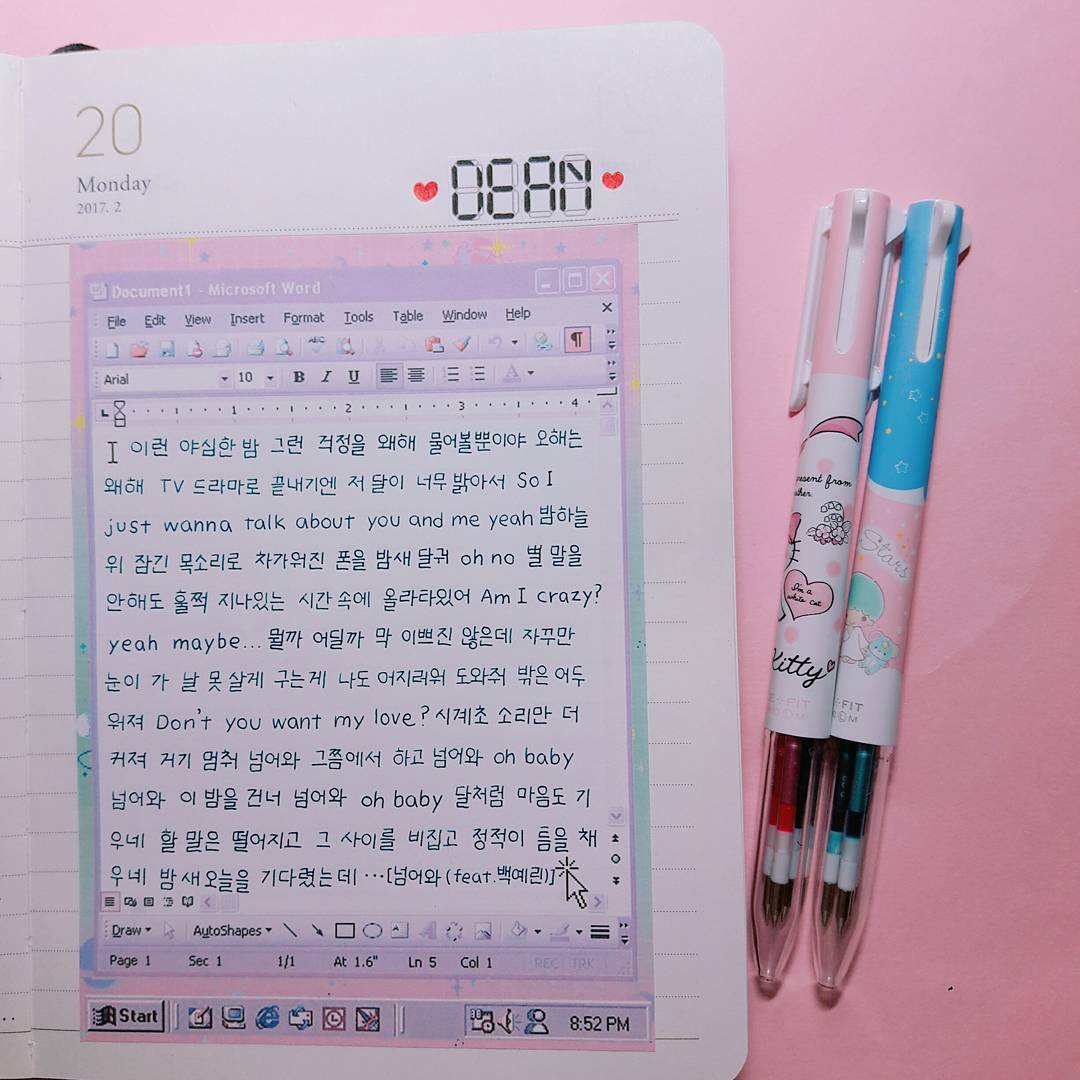 20
Monday
2017. 2
DEAN
Document1 - Microsoft Word
File Edit View Insert Format Tools Table Window Help
Arial 10 B I U A
1 2 3 4
이런 야심한 밤 그런 걱정을 왜해 물어볼뿐이야 오해는
왜해 TV 드라마로 끝내기엔 저 달이 너무 밝아서 So I
just wanna talk about you and me yeah 밤하늘
위 잠긴 목소리로 차가워진 폰을 밤새 달궈 oh no 별 말을
안해도 훌쩍 지나있는 시간 속에 올라타있어 Am I crazy?
yeah maybe... 뭘까 어딜까 막 이쁘진 않은데 자꾸만
눈이 가 날 못 살게 구는게 나도 어지러워 도와줘 밖은 어두
워져 Don't you want my love? 시계초 소리만 더
커져 거기 멈춰 넘어와 그쯤에서 하고 넘어와 oh baby
넘어와 이 밤을 건너 넘어와 oh baby 달처럼 마음도 기
우네 할 말은 떨어지고 그 사이를 비집고 정적이 틈을 채
우네 밤새 오늘을 기다렸는데 …[넘어와(feat.백예린)]
Draw AutoShapes
Page 1 Sec 1 1/1 At 1.6" Ln 5 Col 1 REC TRK
Start 8:52 PM
present from
I'm a
white cat
Kitty
Stars
FIT
FIT